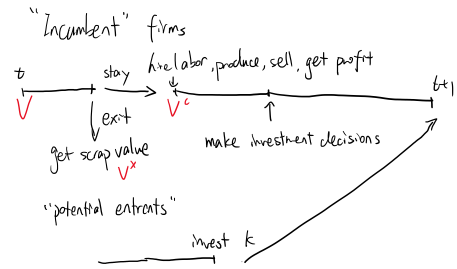 "Incumbent" firms
hire labor, produce, sell, get profit
t
stay
t+1
V
V^c
exit
get scrap value
V^x
make investment decisions
"potential entrants"
invest k